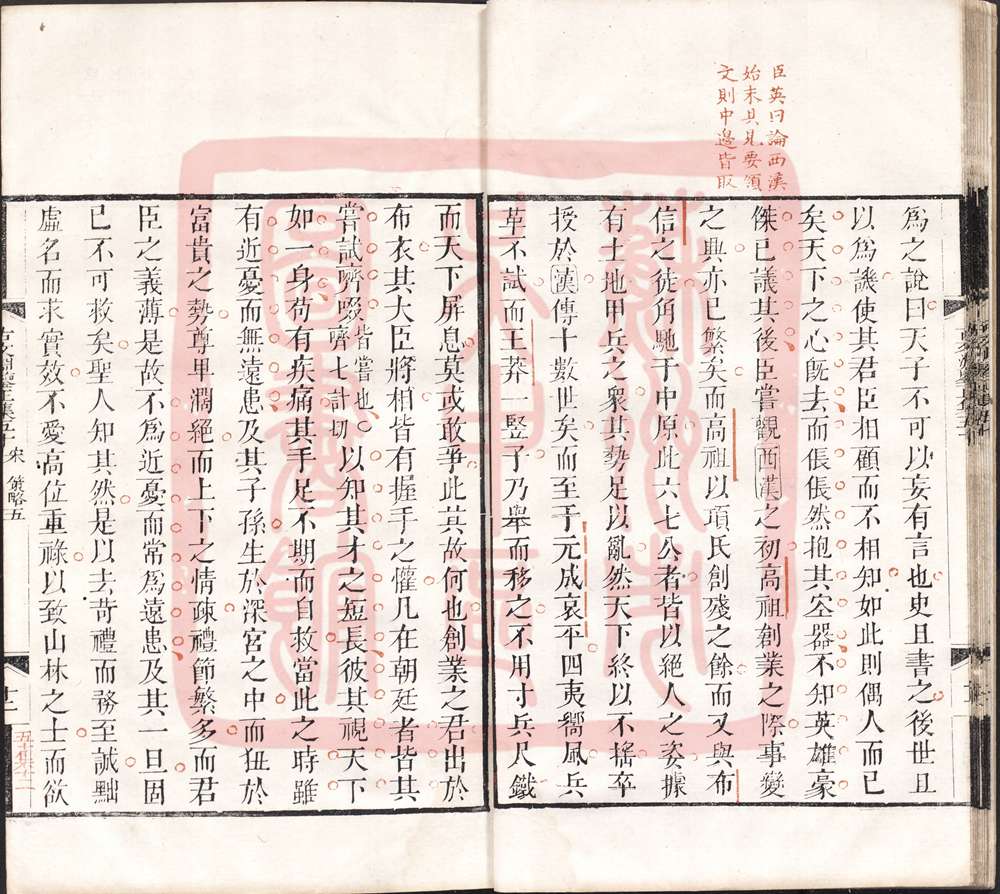 臣英曰論西漢
始末具見要領
文則中邊皆取
爲之說曰天子不可以妄有言也史且書之後世且
以爲譏使其君臣相顧而不相知如此則偶人而已
矣天下之心旣去而倀倀然抱其空器不知英雄豪
傑已議其後臣嘗觀西漢之初高祖創業之際事變
之興亦已繁矣而高祖以項氏創殘之餘而又與布
信之徒角馳于中原此六七公者皆以絕人之姿據
有土地甲兵之衆其勢足以亂然天下終以不搖卒
授於漢傳十數世矣而至于元成哀平四夷嚮風兵
革不試而王莽一豎子乃舉而移之不用寸兵尺鐵
而天下屏息莫或敢爭此其故何也創業之君出於
布衣其大臣將相皆有握手之懽凡在朝廷者皆其
嘗試嚌啜皆嘗也嚌七計切以知其才之短長彼其視天下
如一身苟有疾痛其手足不期而自救當此之時雖
有近憂而無遠患及其子孫生於深宮之中而狃於
富貴之勢尊卑濶絕而上下之情疎禮節繁多而君
臣之義薄是故不爲近憂而常爲遠患及其一旦固
已不可救矣聖人知其然是以去苛禮而務至誠黜
虛名而求實效不愛高位重祿以致山林之士而欲
宋 策略五